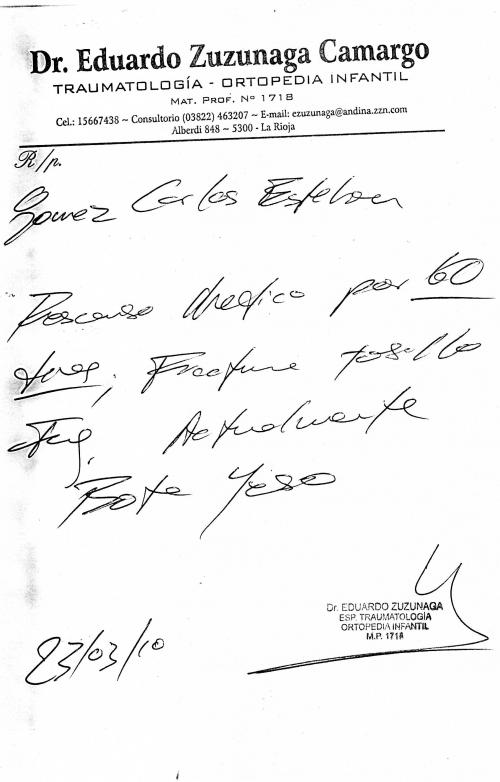 Dr. Eduardo Zuzunaga Camargo
TRAUMATOLOGÍA - ORTOPEDIA INFANTIL
MAT. PROF. Nº 1718
Cel.: 15667438 ~ Consultorio (03822) 463207 ~ E-mail: ezuzunaga@andina.zzn.com
Alberdi 848 ~ 5300 - La Rioja
R/p.
Gomez Carlos Esteban
Descanso Medico por 60
dias; Fractura tobillo
Actualmente
Bota Yeso
Dr. EDUARDO ZUZUNAGA
ESP. TRAUMATOLOGÍA
ORTOPEDIA INFANTIL
M.P. 1718
23/03/10